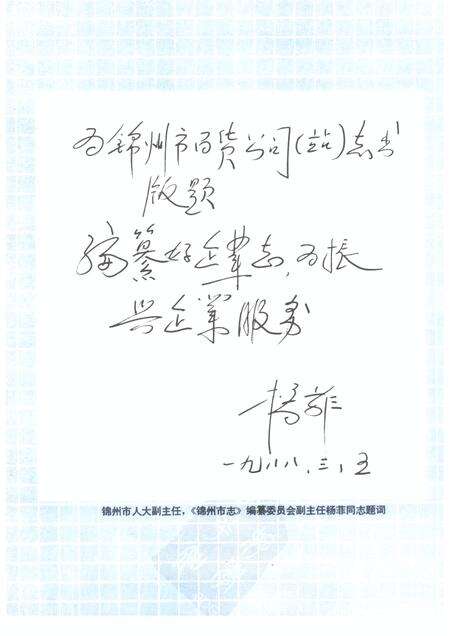 为锦州市百货公司(站)志书
版题
编纂好企業志,为振
兴企業服务
杨菲
一九八八.三.五
锦州市人大副主任,《锦州市志》编纂委员会副主任杨菲同志题词